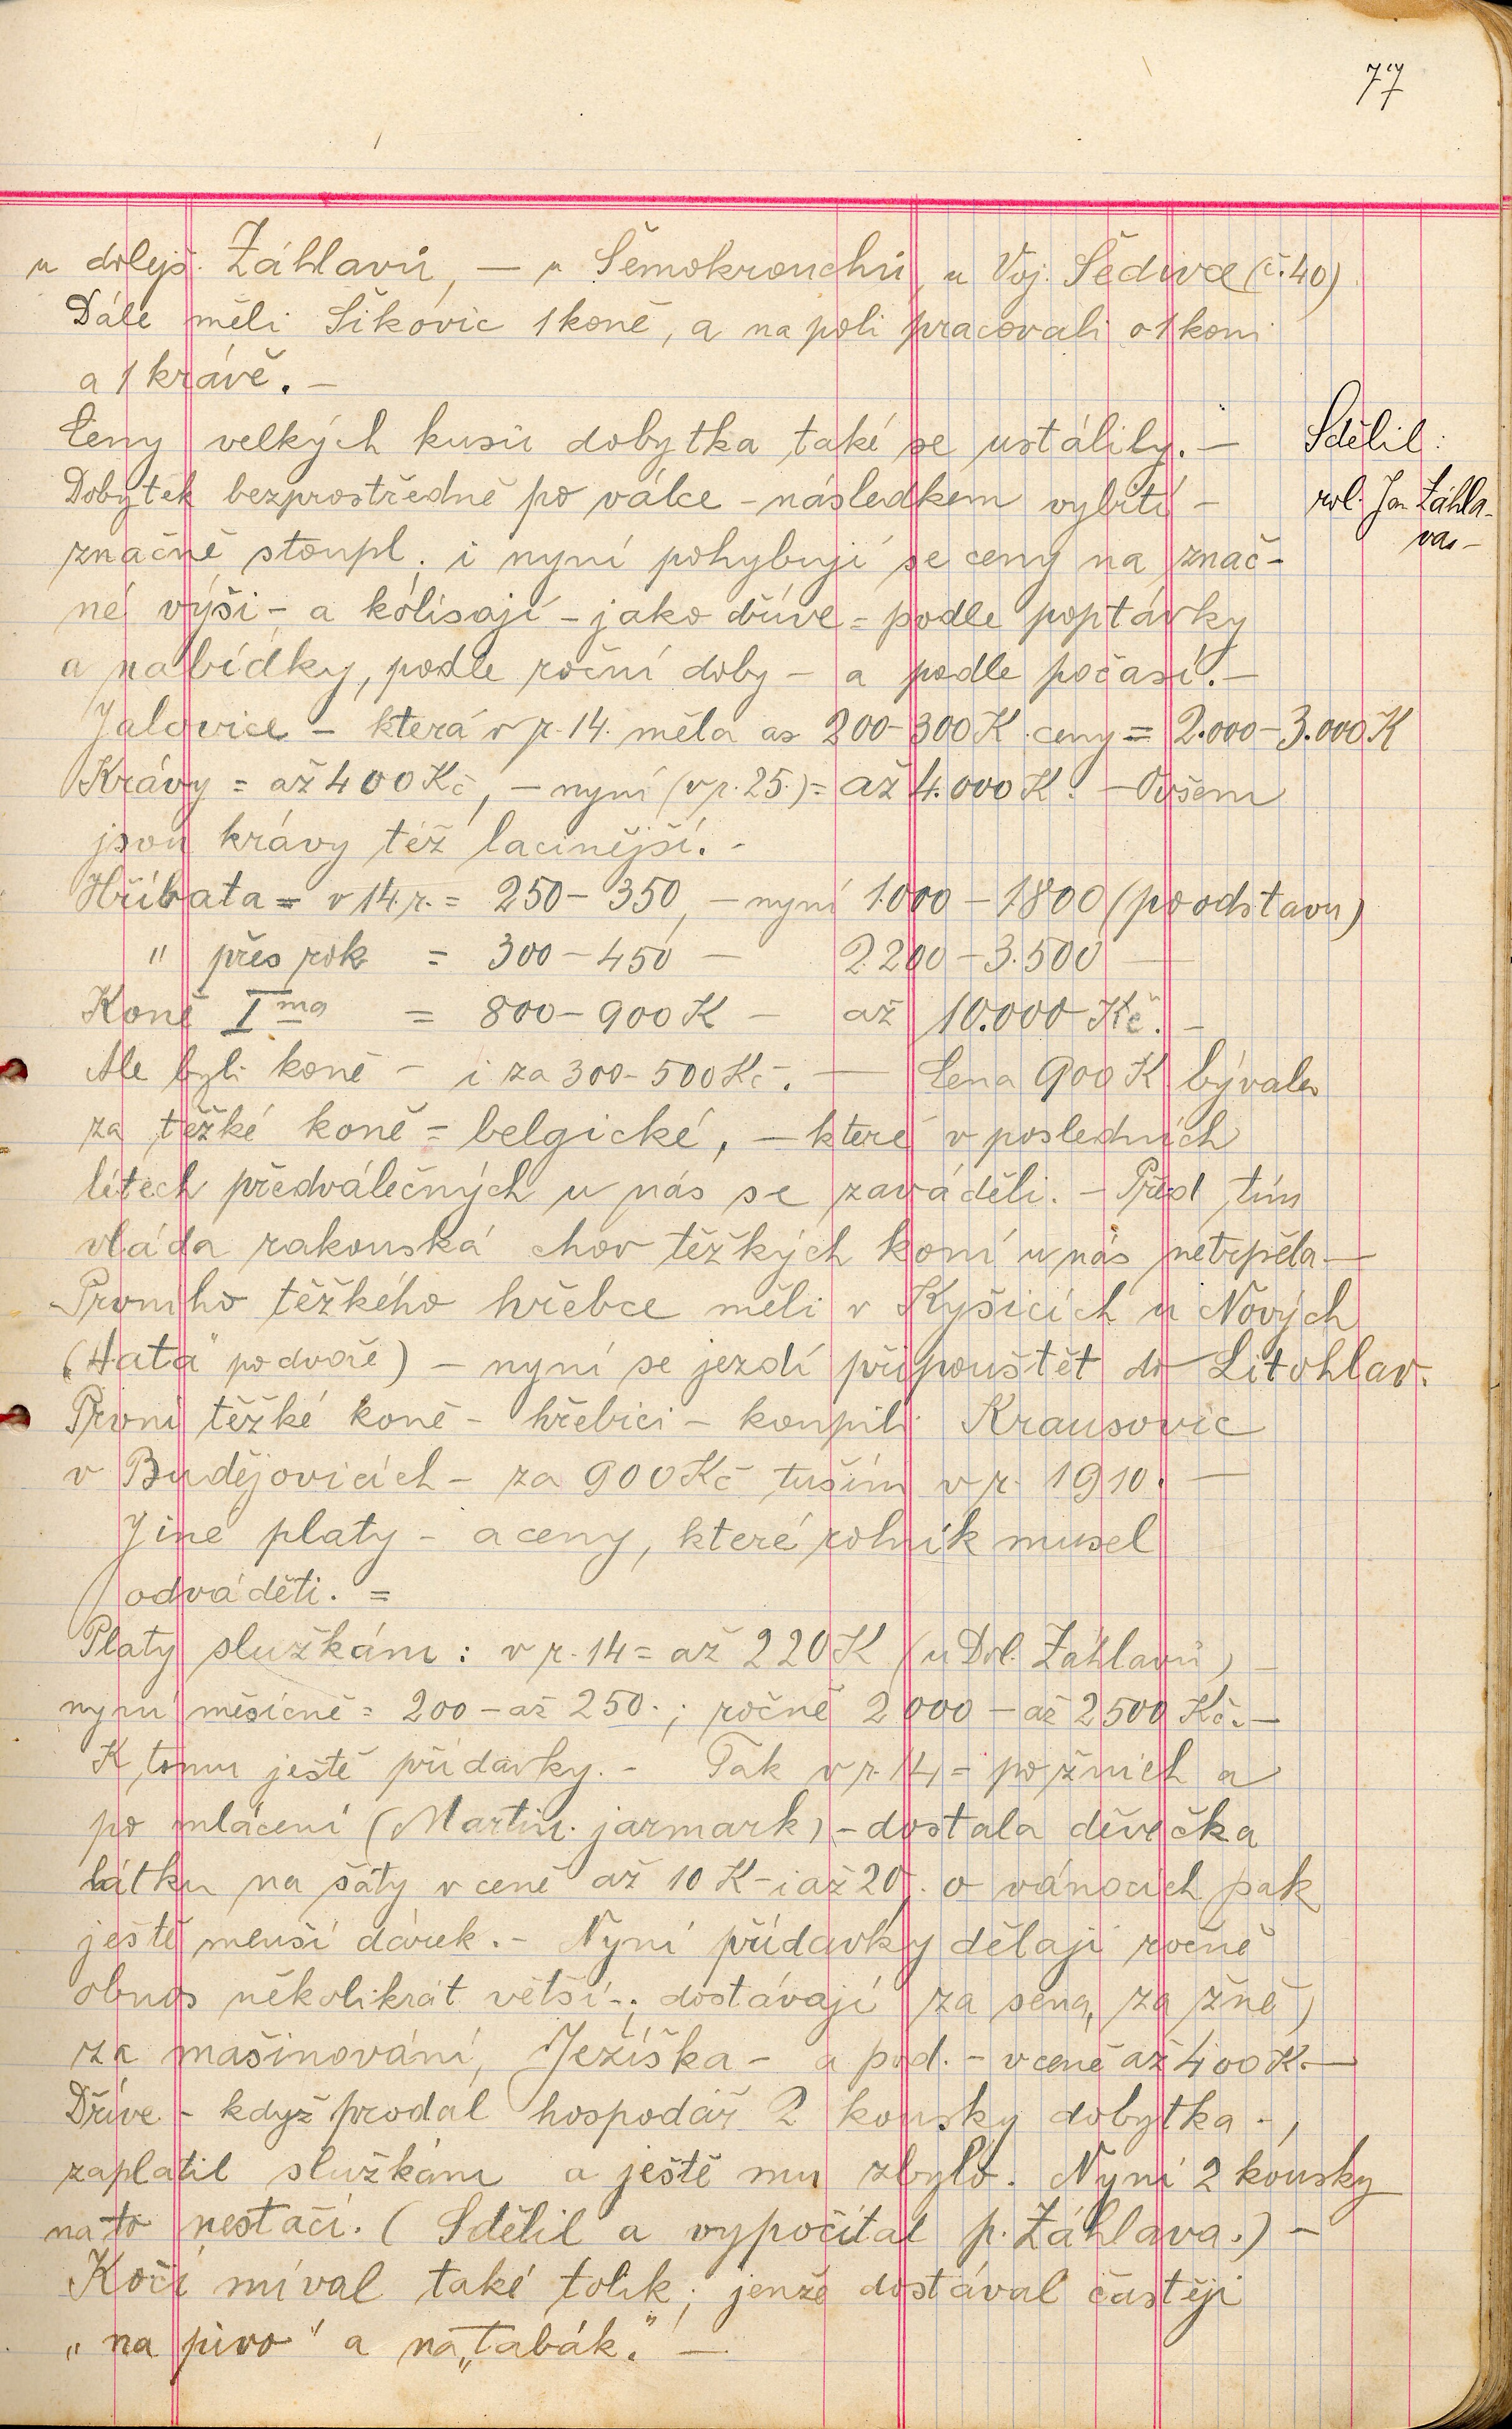 77
u dolejš. Záhlavů, — u Šemokrouchů, u Voj. Šedivce (č. 40)
Dále měli Šikovic 1 koně, a na poli pracovali o 1 koni
a 1 krávě. —
Ceny velkých kusů dobytka také se ustálily. —
Sdělil:
rol. Jan Záhla-
va. —
Dobytek bezprostředně po válce - následkem vybití -
značně stoupl; i nyní pohybují se ceny na znač-
né výši - a kolísají - jako dříve = podle poptávky
a nabídky, podle roční doby - a podle počasí. —
Jalovice - která v r. 14. měla as 200-300 K ceny = 2.000-3.000 K
Krávy = až 400 Kč, - nyní (v r. 25.) = až 4.000 K. - Ovšem
jsou krávy též lacinější. -
Hříbata = v 14. r. = 250 - 350, - nyní 1.000 - 1800 (po odstavu)
" přes rok = 300 - 450 — 2.200 - 3.500 —
Koně I ma = 800 - 900 K - až 10.000 Kč. -
Ale byli koně - i za 300 - 500 Kč. — Cena 900 K bývala
za těžké koně = belgické, - které v posledních
letech předválečných u nás se zaváděli. - Před tím
vláda rakouská chov těžkých koní u nás netrpěla —
Prvního těžkého hřebce měli v Kyšicích u Nových
("Hata" po dvoře) - nyní se jezdí připouštět do Litohlav.
První těžké koně - hřebici - koupili Krausovic
v Budějovicích - za 900 Kč tuším v r. 1910. —
Jiné platy - a ceny, které rolník musel
odváděti. =
Platy služkám: v r. 14 = až 220 K (u Dol. Záhlavů) -
nyní měsíčně = 200 - až 250.; ročně 2000 - až 2500 Kč. —
K tomu ještě přídavky. - Tak v r. 14 = po žních a
po mlácení (Martin. jarmark) - dostala děvečka
látku na šaty v ceně až 10 K - i až 20; o vánocích pak
ještě menší dárek. - Nyní přídavky dělají ročně
obnos několikrát větší -; dostávají za sena, za žně,
za mašinování, Ježíška - a pod. - v ceně až 400 K. —
Dříve - když prodal hospodář 2 kousky dobytka -,
zaplatil služkám a ještě mu zbylo. Nyní 2 kousky
na to nestačí. (Sdělil a vypočítal p. Záhlava.) -
Kočí míval také tolik; jenže dostával častěji
"na pivo" a na "tabák." —